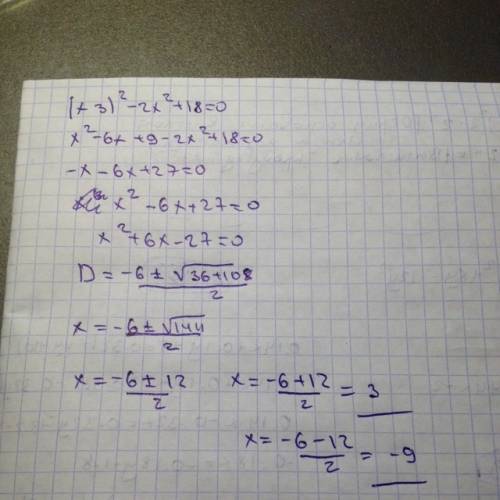 (x 3)² - 2x² + 18 = 0
x² - 6x + 9 - 2x² + 18 = 0
-x - 6x + 27 = 0
x² - 6x + 27 = 0
x² + 6x - 27 = 0
D = -6 ± √36+108 / 2
x = -6 ± √144 / 2
x = -6 ± 12 / 2 x = -6 + 12 / 2 = 3
x = -6 - 12 / 2 = -9